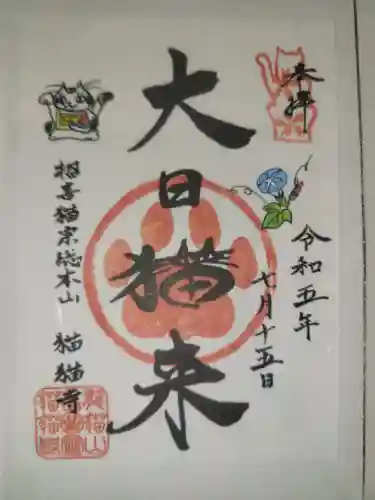 奉拝
令和五年
七月十五日
大日猫来
招喜猫宗総本山 猫猫寺